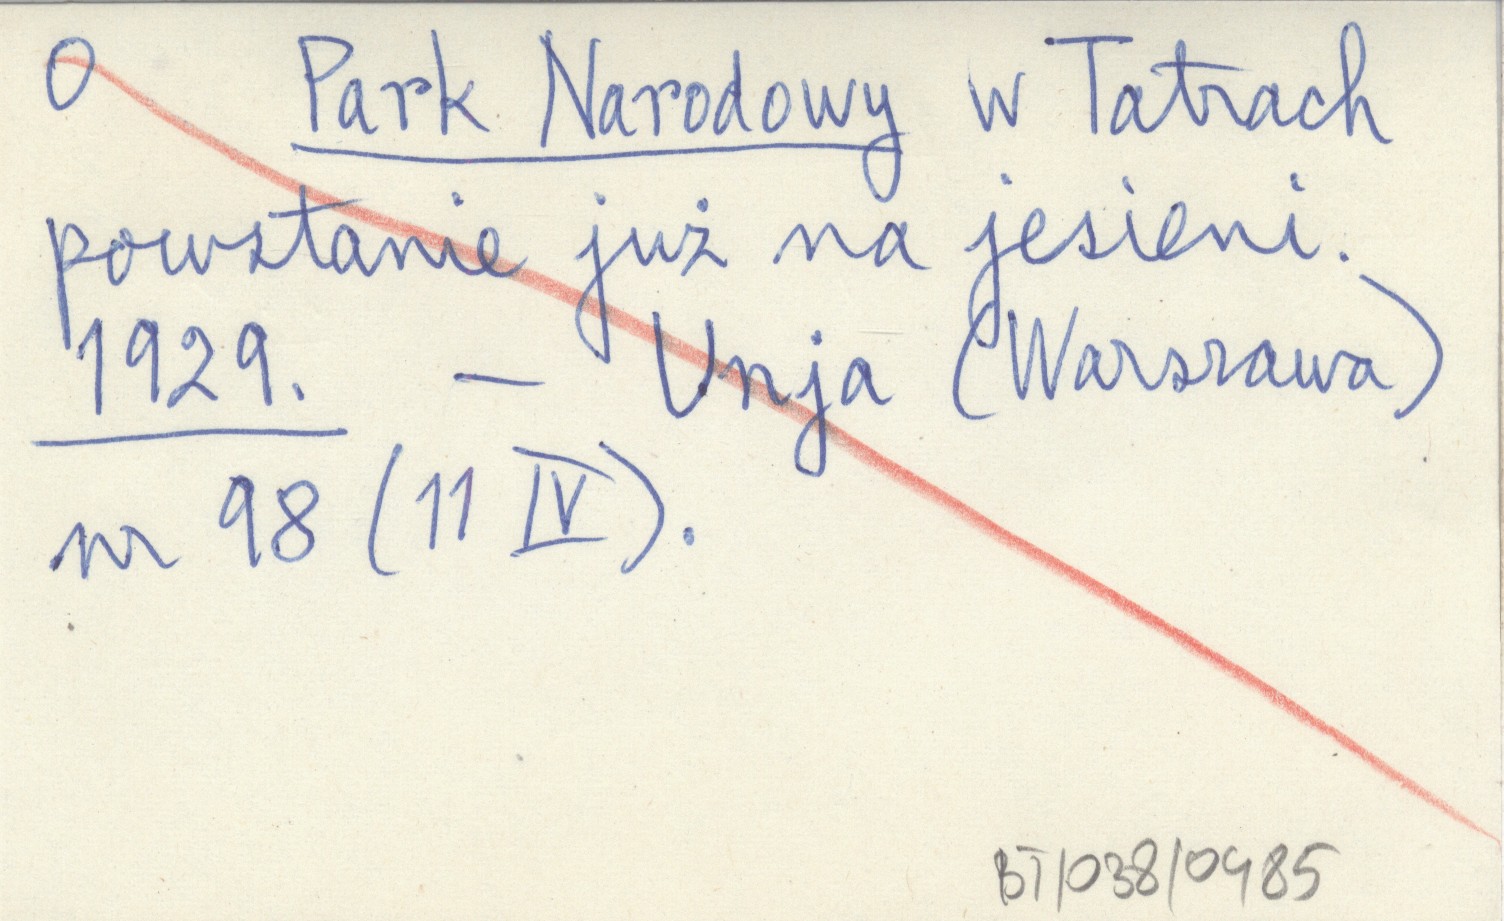 O Park Narodowy w Tatrach
powstanie już na jesieni.
1929. – Unja (Warszawa)
nr 98 (11 IV).
BT/038/0485